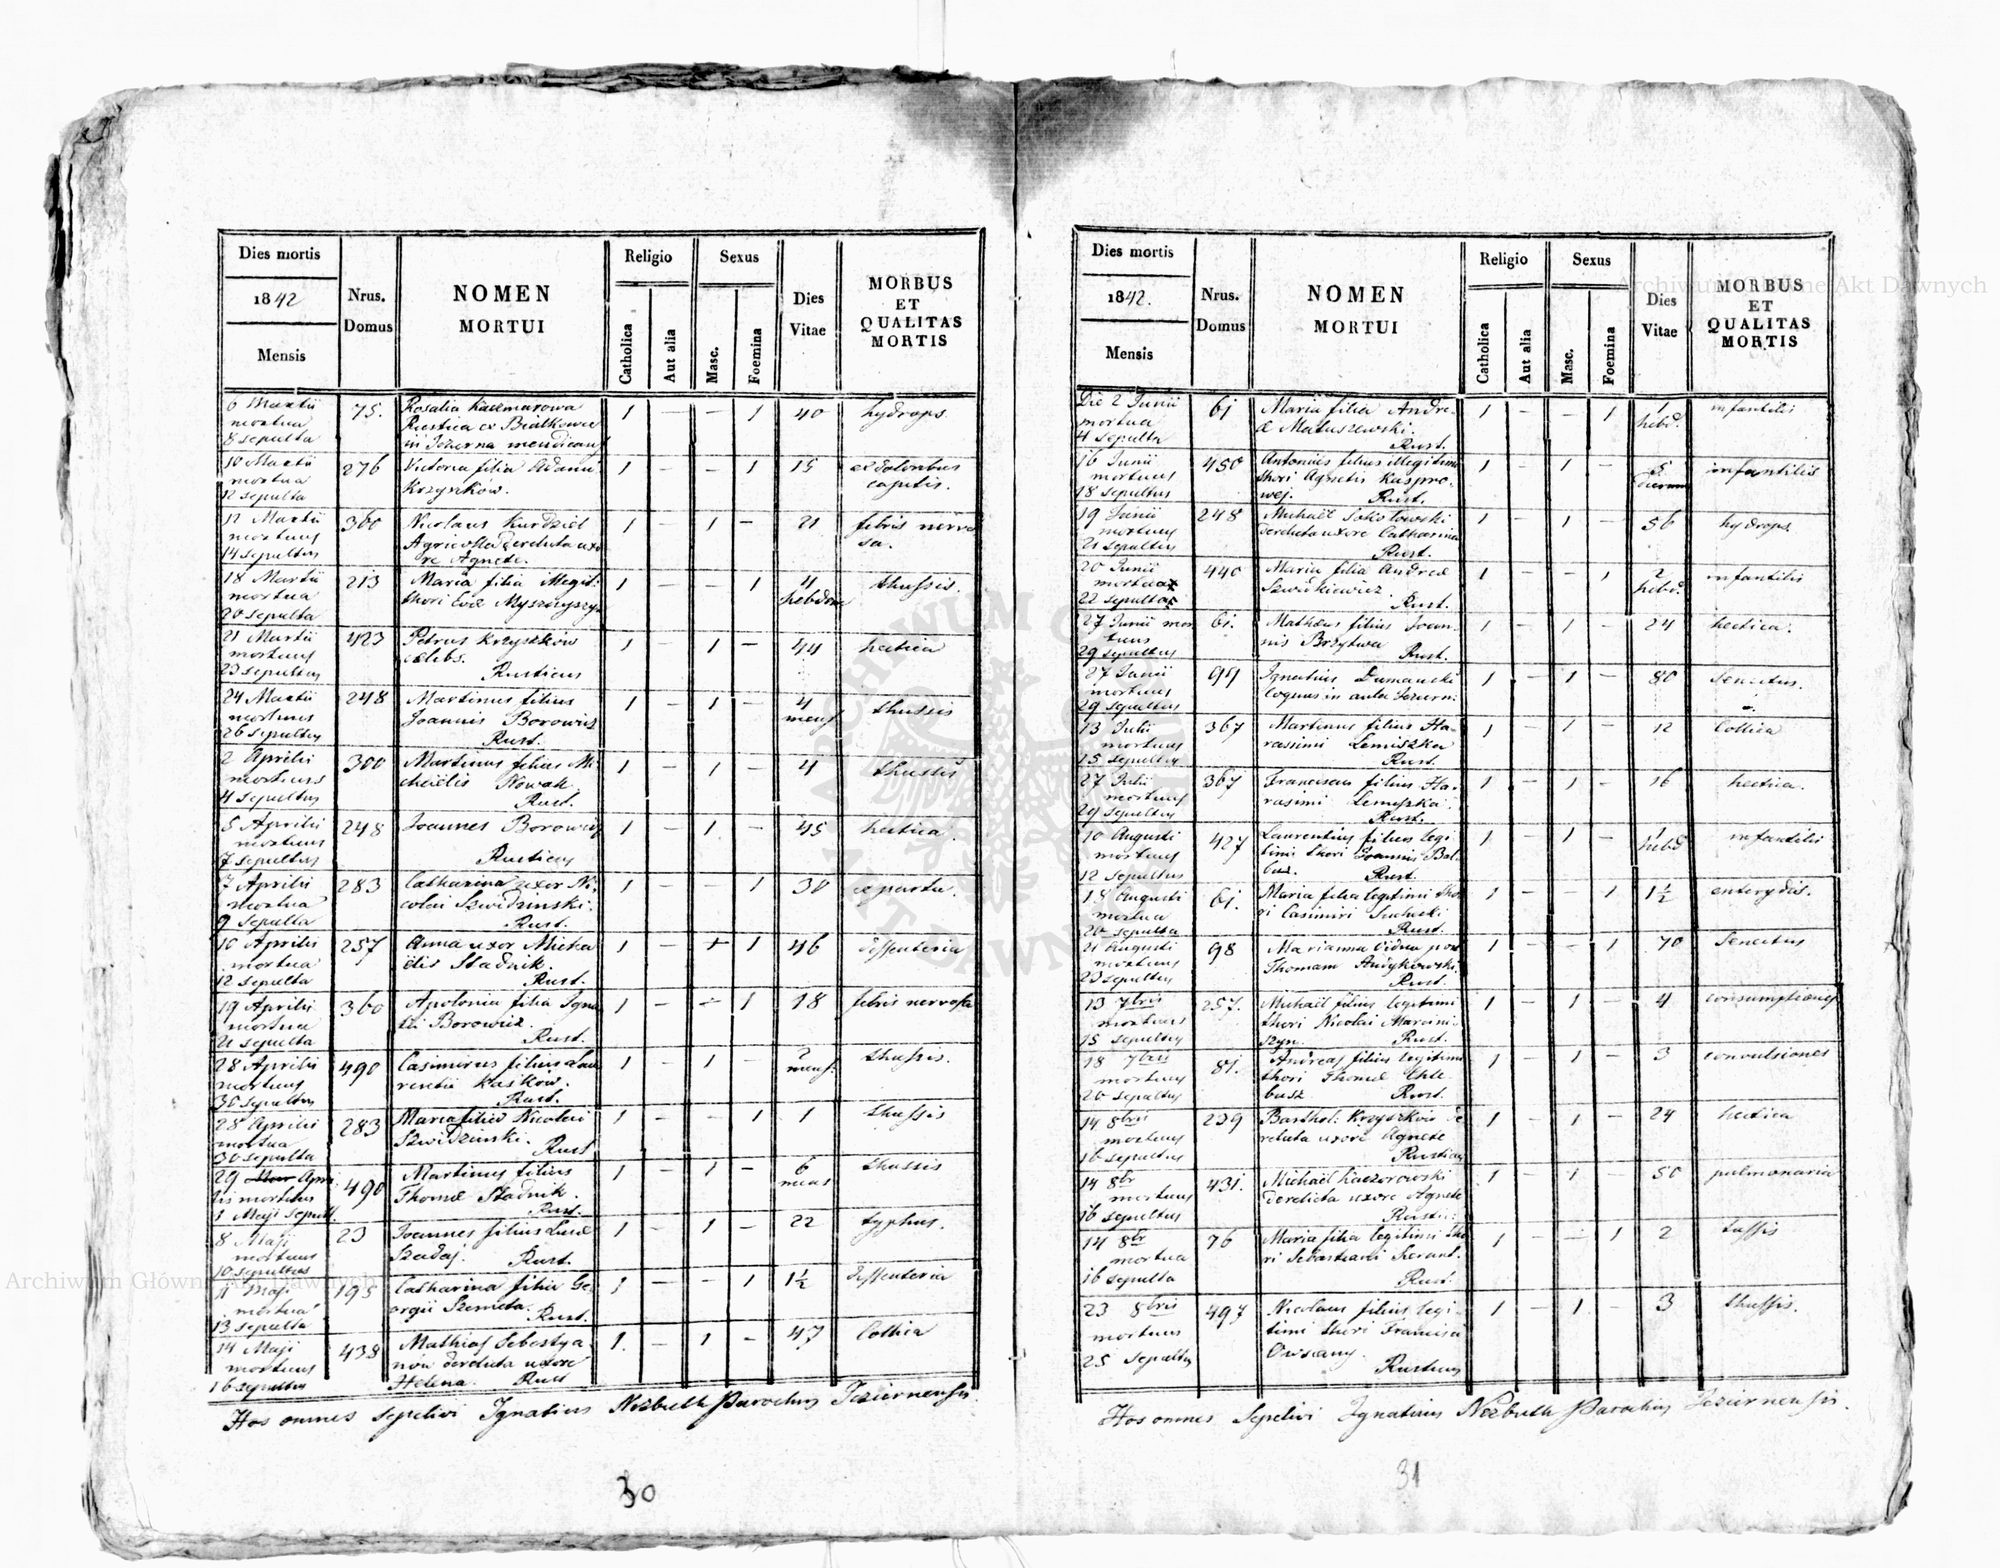 Dies mortis
1842
Mensis
Nrus.
Domus
NOMEN
MORTUI
Religio
Catholica
Aut alia
Sexus
Masc.
Foemina
Dies
Vitae
MORBUS
ET
QUALITAS
MORTIS
6 Martii 75. Rosalia Kaczmarowa 1 – – 1 40 hydrops
mortua Rustica ex Białkowce
8 sepulta in Jezierna
10 Martii 276 Victoria filia Adami 1 – – 1 15 ex doloribus
mortua Krzyszków. capitis.
12 sepulta
12 Martii 360 Nicolaus Kurdziel 1 – 1 – 21 febris nervo
mortuus Agricola derelicta uxo sa.
14 sepultus re Agnete.
18 Martii 213 Maria filia illegit: 1 – 1 4 thussis.
mortua thori Evæ hebdom
20 sepulta
21 Martii 423 Petrus Krzyszków 1 – 1 – 44 hectica
mortuus cælebs.
23 sepultus Rusticus
24 Martii 248 Martinus filius 1 – 1 – 4 thussis
mortuus Joannis Borowicz mens
26 sepultus Rust.
2 Aprilis 300 Martinus filius Mi 1 – 1 – 4 thussis
mortuus chaelis Nowak
4 sepultus Rust.
5 Aprilis 248 Joannes Borowicz 1 – 1 – 45 hectica.
mortuus
7 sepultus Rusticus
7 Aprilis 283 Catharina uxor Ni- 1 – 1 30 ex partu.
mortua colai Szwidzinski.
9 sepulta Rust.
10 Aprilis 257 Anna uxor Micha 1 1 46 dissenteria
mortua elis Stadnik.
12 sepulta Rust.
19 Aprilis 360 Apolonia filia Igna 1 – – 1 18 febris nervosa
mortua tii Borowicz.
21 sepulta Rust.
28 Aprilis 490 Casimirus filius Lau 1 – 1 – 2 thussis.
mortuus rentii Kaśków. mens.
30 sepultus Rust.
28 Aprilis 283 Maria filia Nicolai 1 – – 1 1 thussis
mortua Szwidzinski.
30 sepulta Rust
29 Apri 490 Martinus filius 1 – 1 – 6 thussis
lis mortuus Thomæ Stadnik. mens
1 Maji sepult. Rust.
8 Maji 23 Joannes filius Lucæ 1 – 1 – 22 typhus.
mortuus Szadaj. Rust.
10 sepultus
11 Maji 195 Catharina filia Ge- 1 – – 1 1½ dissenteria
mortua orgii Rust.
13 sepulta
14 Maji 438 Mathias Sebestya- 1. – 1 – 47 Collica
mortuus nów derelicta uxore
16 sepultus Helena. Rust
Hos omnes sepelivi Ignatius Nezbuth Parochus Jeziernensis.
30
Dies mortis
1842.
Mensis
Nrus.
Domus
NOMEN
MORTUI
Religio
Catholica
Aut alia
Sexus
Masc.
Foemina
Dies
Vitae
MORBUS
ET
QUALITAS
MORTIS
Die 2 Junii 61 Maria filia Andre- 1 – – 1 1 infantilis
mortua æ Matuszewski. hebd.
4 sepulta Rust.
16 Junii 450 Antonius filius illegitimi 1 – 1 – 5 infantilis
mortuus thori Agnetis Kaspro- dierum
18 sepultus wej. Rust.
19 Junii 248 Michaël Sokołowski 1 – 1 – 56 hydrops
mortuus derelicta uxore Catharina
21 sepultus Rust.
20 Junii 440 Maria filia Andreæ 1 – – 1 2 infantilis
mortua hebd.
22 sepulta Rust.
27 Junii mor 61. Matheus filius Joan- 1 – 1 – 24 hectica.
tuus nis Brzytwa
29 sepultus Rust.
27 Junii 99 Ignatius Dumanski 1 – 1 – 80 Senectus.
mortuus coquus in aula
29 sepultus
13 Julii 367 Martinus filius Ha- 1 – 1 – 12 Collica
mortuus rassimi Lemiszka
15 sepultus Rust.
27 Julii 367 Franciscus filius Ha- 1 – 1 – 16 hectica.
mortuus rasimi Lemiszka.
29 sepultus Rust.
10 Augusti 427 Laurentius filius legi 1 – 1 – 1 infantilis
mortuus timi thori Joannis Bal- hebd
12 sepultus Rust.
18 Augusti 61. Maria filia legitimi tho 1 – – 1 1½
mortua ri Casimiri Suchecki
20 sepulta Rust.
21 Augusti 98 Marianna vidua post 1 – – 1 70 Senectus
mortuus Thomam
23 sepultus Rust.
13 7bris 257. Michaël filius legitimi 1 – 1 – 4
mortuus thori Nicolai Marcini-
15 sepultus szyn. Rust.
18 7bris 81. Andreas filius legitimi 1 – 1 – 3 convulsiones
mortuus thori Thomæ Chle
20 sepultus busz Rust.
14 8bris 239 Barthol: Krzyszków de 1 – 1 – 24 hectica
mortuus relicta uxore Agnete
16 sepultus Rusticus
14 8br 431. Michaël Kaczorowski 1 – 1 – 50 pulmonaria
mortuus derelicta uxore Agnete
16 sepultus
14 8br 76 Maria filia legitimi tho 1 – 1 2 tussis
mortua ri Sebastiani
16 sepulta Rust.
23 8bris 497 Nicolaus filius legi- 1 – 1 – 3 thussis.
mortuus timi thori Francisci
25 sepultus Owsiany.
Rusticus
Hos omnes Sepelivi Ignatius Nezbuth Parochus Jeziernensis.
31
Archiwum Główne Akt Dawnych
ARCHIWUM GŁÓWNE AKT DAWNYCH